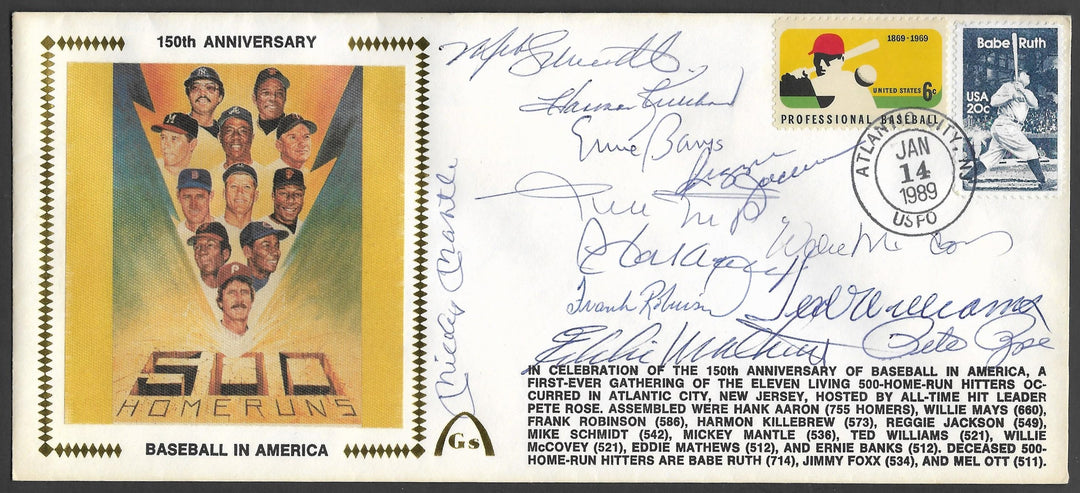 150th ANNIVERSARY
500
HOMERUNS
BASEBALL IN AMERICA
Mickey Mantle
Gs
Mike Schmidt
Harmon Killebrew
Ernie Banks
Reggie Jackson
Willie Mays
Willie McCovey
Hank Aaron
Frank Robinson
Ted Williams
Eddie Mathews
Pete Rose
1869-1969
UNITED STATES 6c
PROFESSIONAL BASEBALL
Babe Ruth
USA
20c
ATLANTIC CITY, NJ
JAN
14
1989
USPO
IN CELEBRATION OF THE 150th ANNIVERSARY OF BASEBALL IN AMERICA, A
FIRST-EVER GATHERING OF THE ELEVEN LIVING 500-HOME-RUN HITTERS OC-
CURRED IN ATLANTIC CITY, NEW JERSEY, HOSTED BY ALL-TIME HIT LEADER
PETE ROSE. ASSEMBLED WERE HANK AARON (755 HOMERS), WILLIE MAYS (660),
FRANK ROBINSON (586), HARMON KILLEBREW (573), REGGIE JACKSON (549),
MIKE SCHMIDT (542), MICKEY MANTLE (536), TED WILLIAMS (521), WILLIE
McCOVEY (521), EDDIE MATHEWS (512), AND ERNIE BANKS (512). DECEASED 500-
HOME-RUN HITTERS ARE BABE RUTH (714), JIMMY FOXX (534), AND MEL OTT (511).